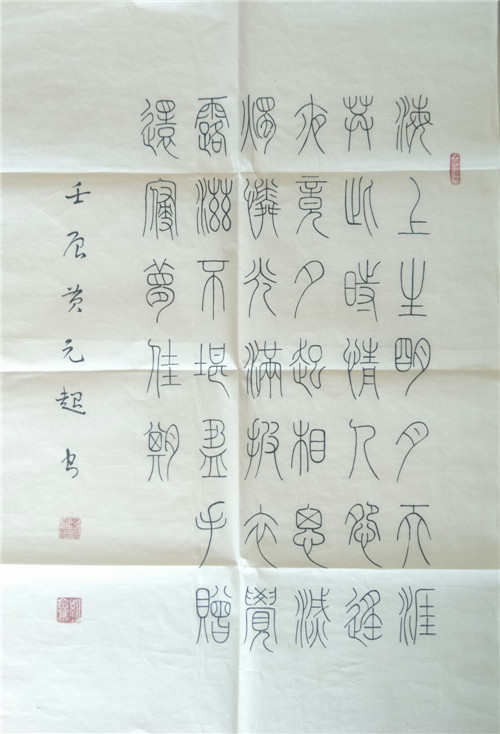 海上生明月天涯
共此時情人怨遙
夜竟夕起相思滅
燭憐光滿披衣覺
露滋不堪盈手贈
還寢夢佳期
壬辰黄元超书